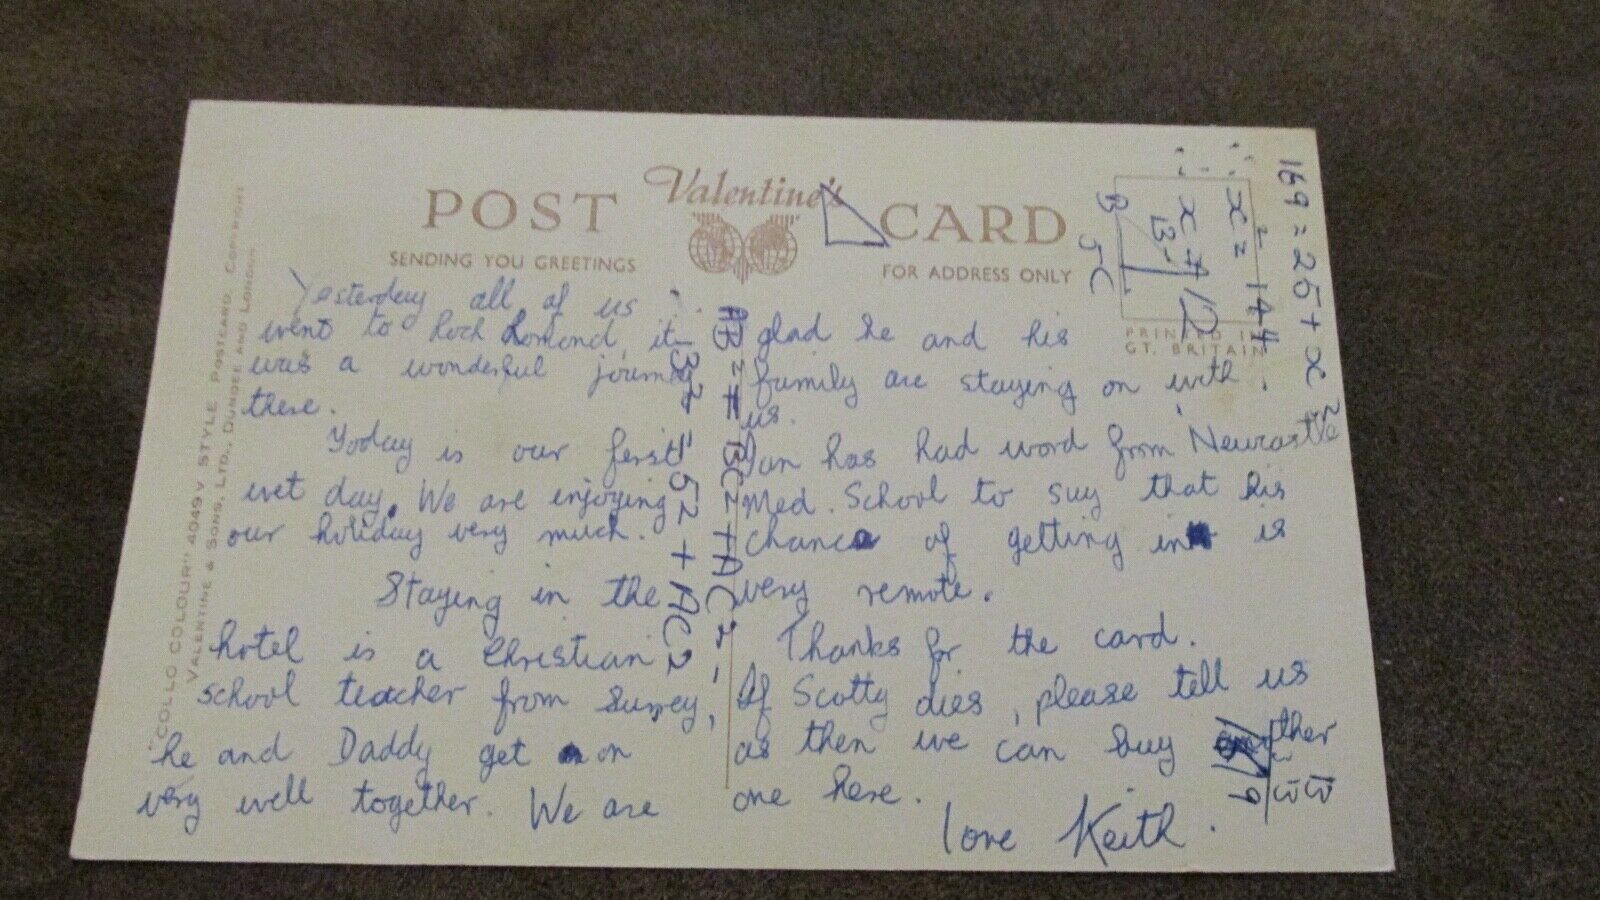 POST CARD
Valentine's
SENDING YOU GREETINGS
FOR ADDRESS ONLY
PRINTED IN
GT. BRITAIN
"COLLO COLOUR" 4049V STYLE POSTCARD. COPYRIGHT
VALENTINE & SONS, LTD., DUNDEE AND LONDON
Yesterday all of us
went to Loch Lomond, it
was a wonderful journey
there.
Today is our first
wet day. We are enjoying
our holiday very much.
Staying in the
hotel is a Christian
school teacher from Surrey,
he and Daddy get on
very well together. We are
glad he and his
family are staying on with
us.
Ian has had word from Newcastle
Med. School to say that his
chance of getting in is
very remote.
Thanks for the card.
If Scotty dies, please tell us
as then we can buy another
one here.
love Keith.
AB2 = BC2 + AC2
132 = 52 + AC2
169 = 25 + x2
x2 = 144
x = 12
B 5 C
A
13
169
13
13